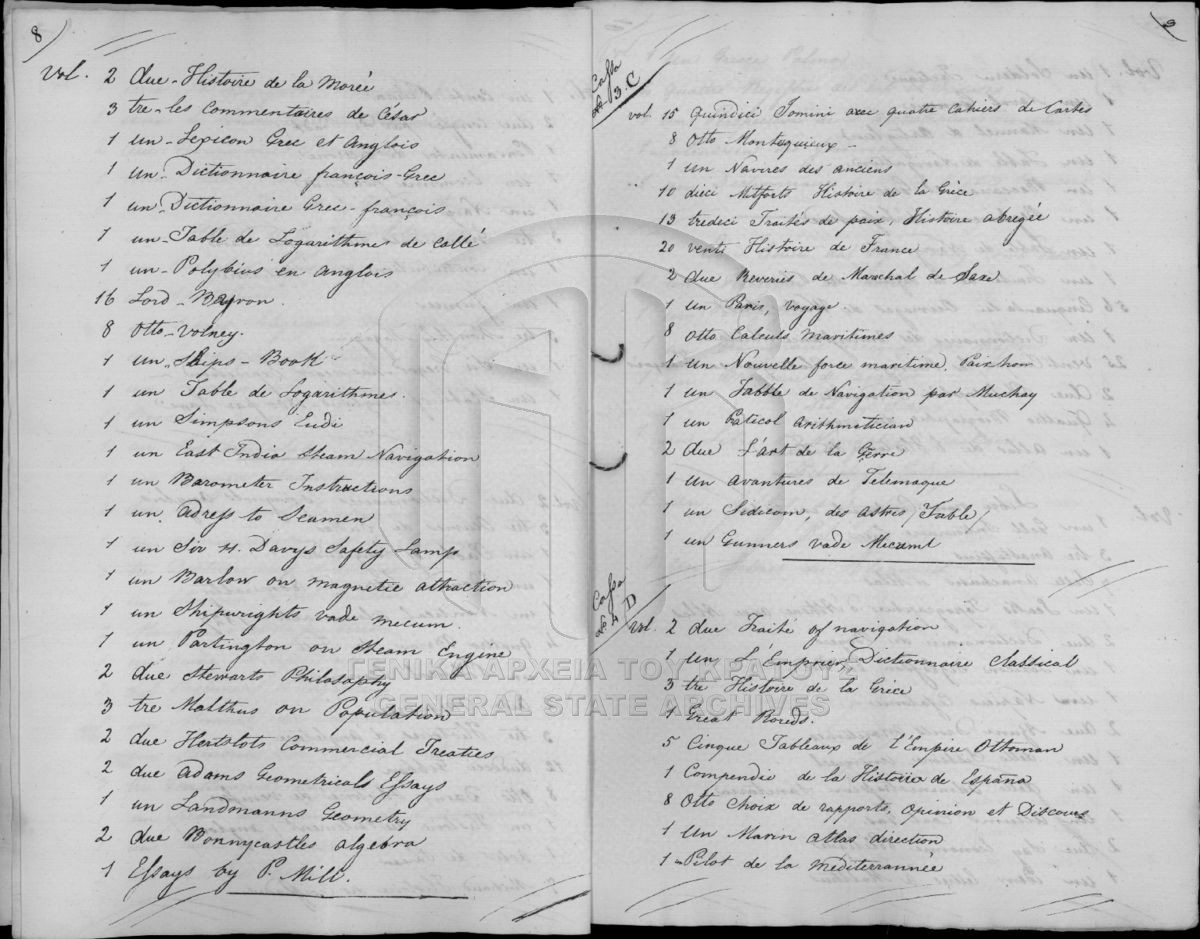 8
Vol. 2 due - Histoire de la Morée
3 tre - les commentaires de César
1 un - Lexicon Grec et Anglois
1 un - Dictionnaire françois - Grec
1 un - Dictionnaire Grec - françois
1 un - Table de Logarithmes de callé
1 un - Polybius en anglois
16 Lord - Bayron.
8 Otto - Volney.
1 un Ships - Book
1 un Table de Logarithmes.
1 un Simpsons Eudi
1 un East India Steam Navigation
1 un Barometer Instructions
1 un Adress to Seamen
1 un Sir H. Davys Safety Lamp
1 un Barlow on magnetic attraction
1 un Shipwrights vade mecum.
1 un Partington on Steam Engine
2 due Stewarts Philosophy
3 tre Malthus on Population
2 due Hertslots Commercial Treaties
2 due Adams Geometricals Essays
1 un Landmanns Geometry
2 due Bonnycastles algebra
1 Essays by P. Mill.
9
Cassa
No 3. C
vol. 15 Quindici Jomini avec quatre Cahiers de Cartes
8 Otto Montesquieux -
1 un Navires des anciens
10 dieci Mitforts Histoire de la Grèce
13 tredeci Traités de paix, Histoire abregée
20 venti Histoire de France
2 due Reveries de Marechal de Saxe
1 un Paris, voyage
8 Otto Calculs maritimes
1 un Nouvelle force maritime, Paixhom
1 un Tabble de Navigation par Muchay
1 un Paticol arithmetician
2 due L'art de la Gerre
1 un avantures de Telemaque
1 un Sidicom, des astres / Table /
1 un Gunners vade Mecuml
Cassa
No 4 D
Vol. 2 due Traité of navigation
1 un L'Emprier Dictionnaire Classical
3 tre Histoire de la Grèce
1 Great Roeds.
5 Cinque Tableaux de l'Empire Ottoman
1 Compendie de la Histoire de España
8 Otto Choix de rapports, Opinion et Discours
1 Un Marin Atlas direction
1 un Pilot de la mediterrannée
ΓΕΝΙΚΑ ΑΡΧΕΙΑ ΤΟΥ ΚΡΑΤΟΥΣ
GENERAL STATE ARCHIVES